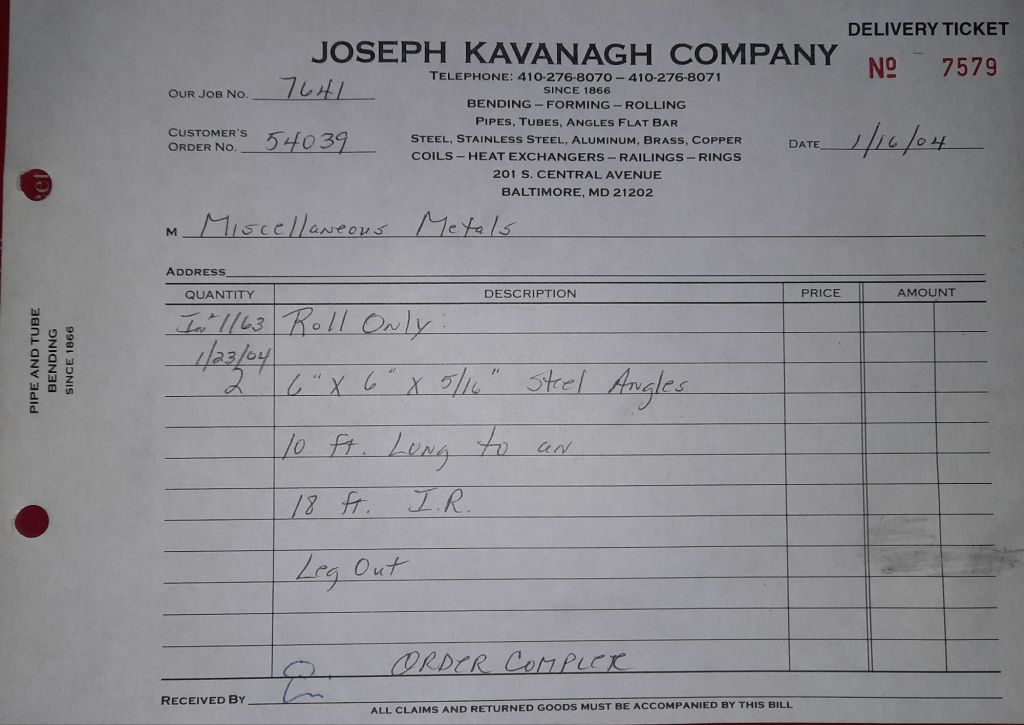 DELIVERY TICKET
JOSEPH KAVANAGH COMPANY
Nº 7579
TELEPHONE: 410-276-8070 – 410-276-8071
SINCE 1866
OUR JOB NO. 7641
BENDING – FORMING – ROLLING
PIPES, TUBES, ANGLES FLAT BAR
CUSTOMER'S
ORDER NO. 54039
STEEL, STAINLESS STEEL, ALUMINUM, BRASS, COPPER
DATE 1/16/04
COILS – HEAT EXCHANGERS – RAILINGS – RINGS
201 S. CENTRAL AVENUE
BALTIMORE, MD 21202
M Miscellaneous Metals
ADDRESS
QUANTITY DESCRIPTION PRICE AMOUNT
In# 1163 Roll Only:
1/23/04
2 6" X 6" X 5/16" Steel Angles
10 ft. Long to an
18 ft. I.R.
Leg Out
ORDER COMPLETE
RECEIVED BY
ALL CLAIMS AND RETURNED GOODS MUST BE ACCOMPANIED BY THIS BILL
PIPE AND TUBE
BENDING
SINCE 1866